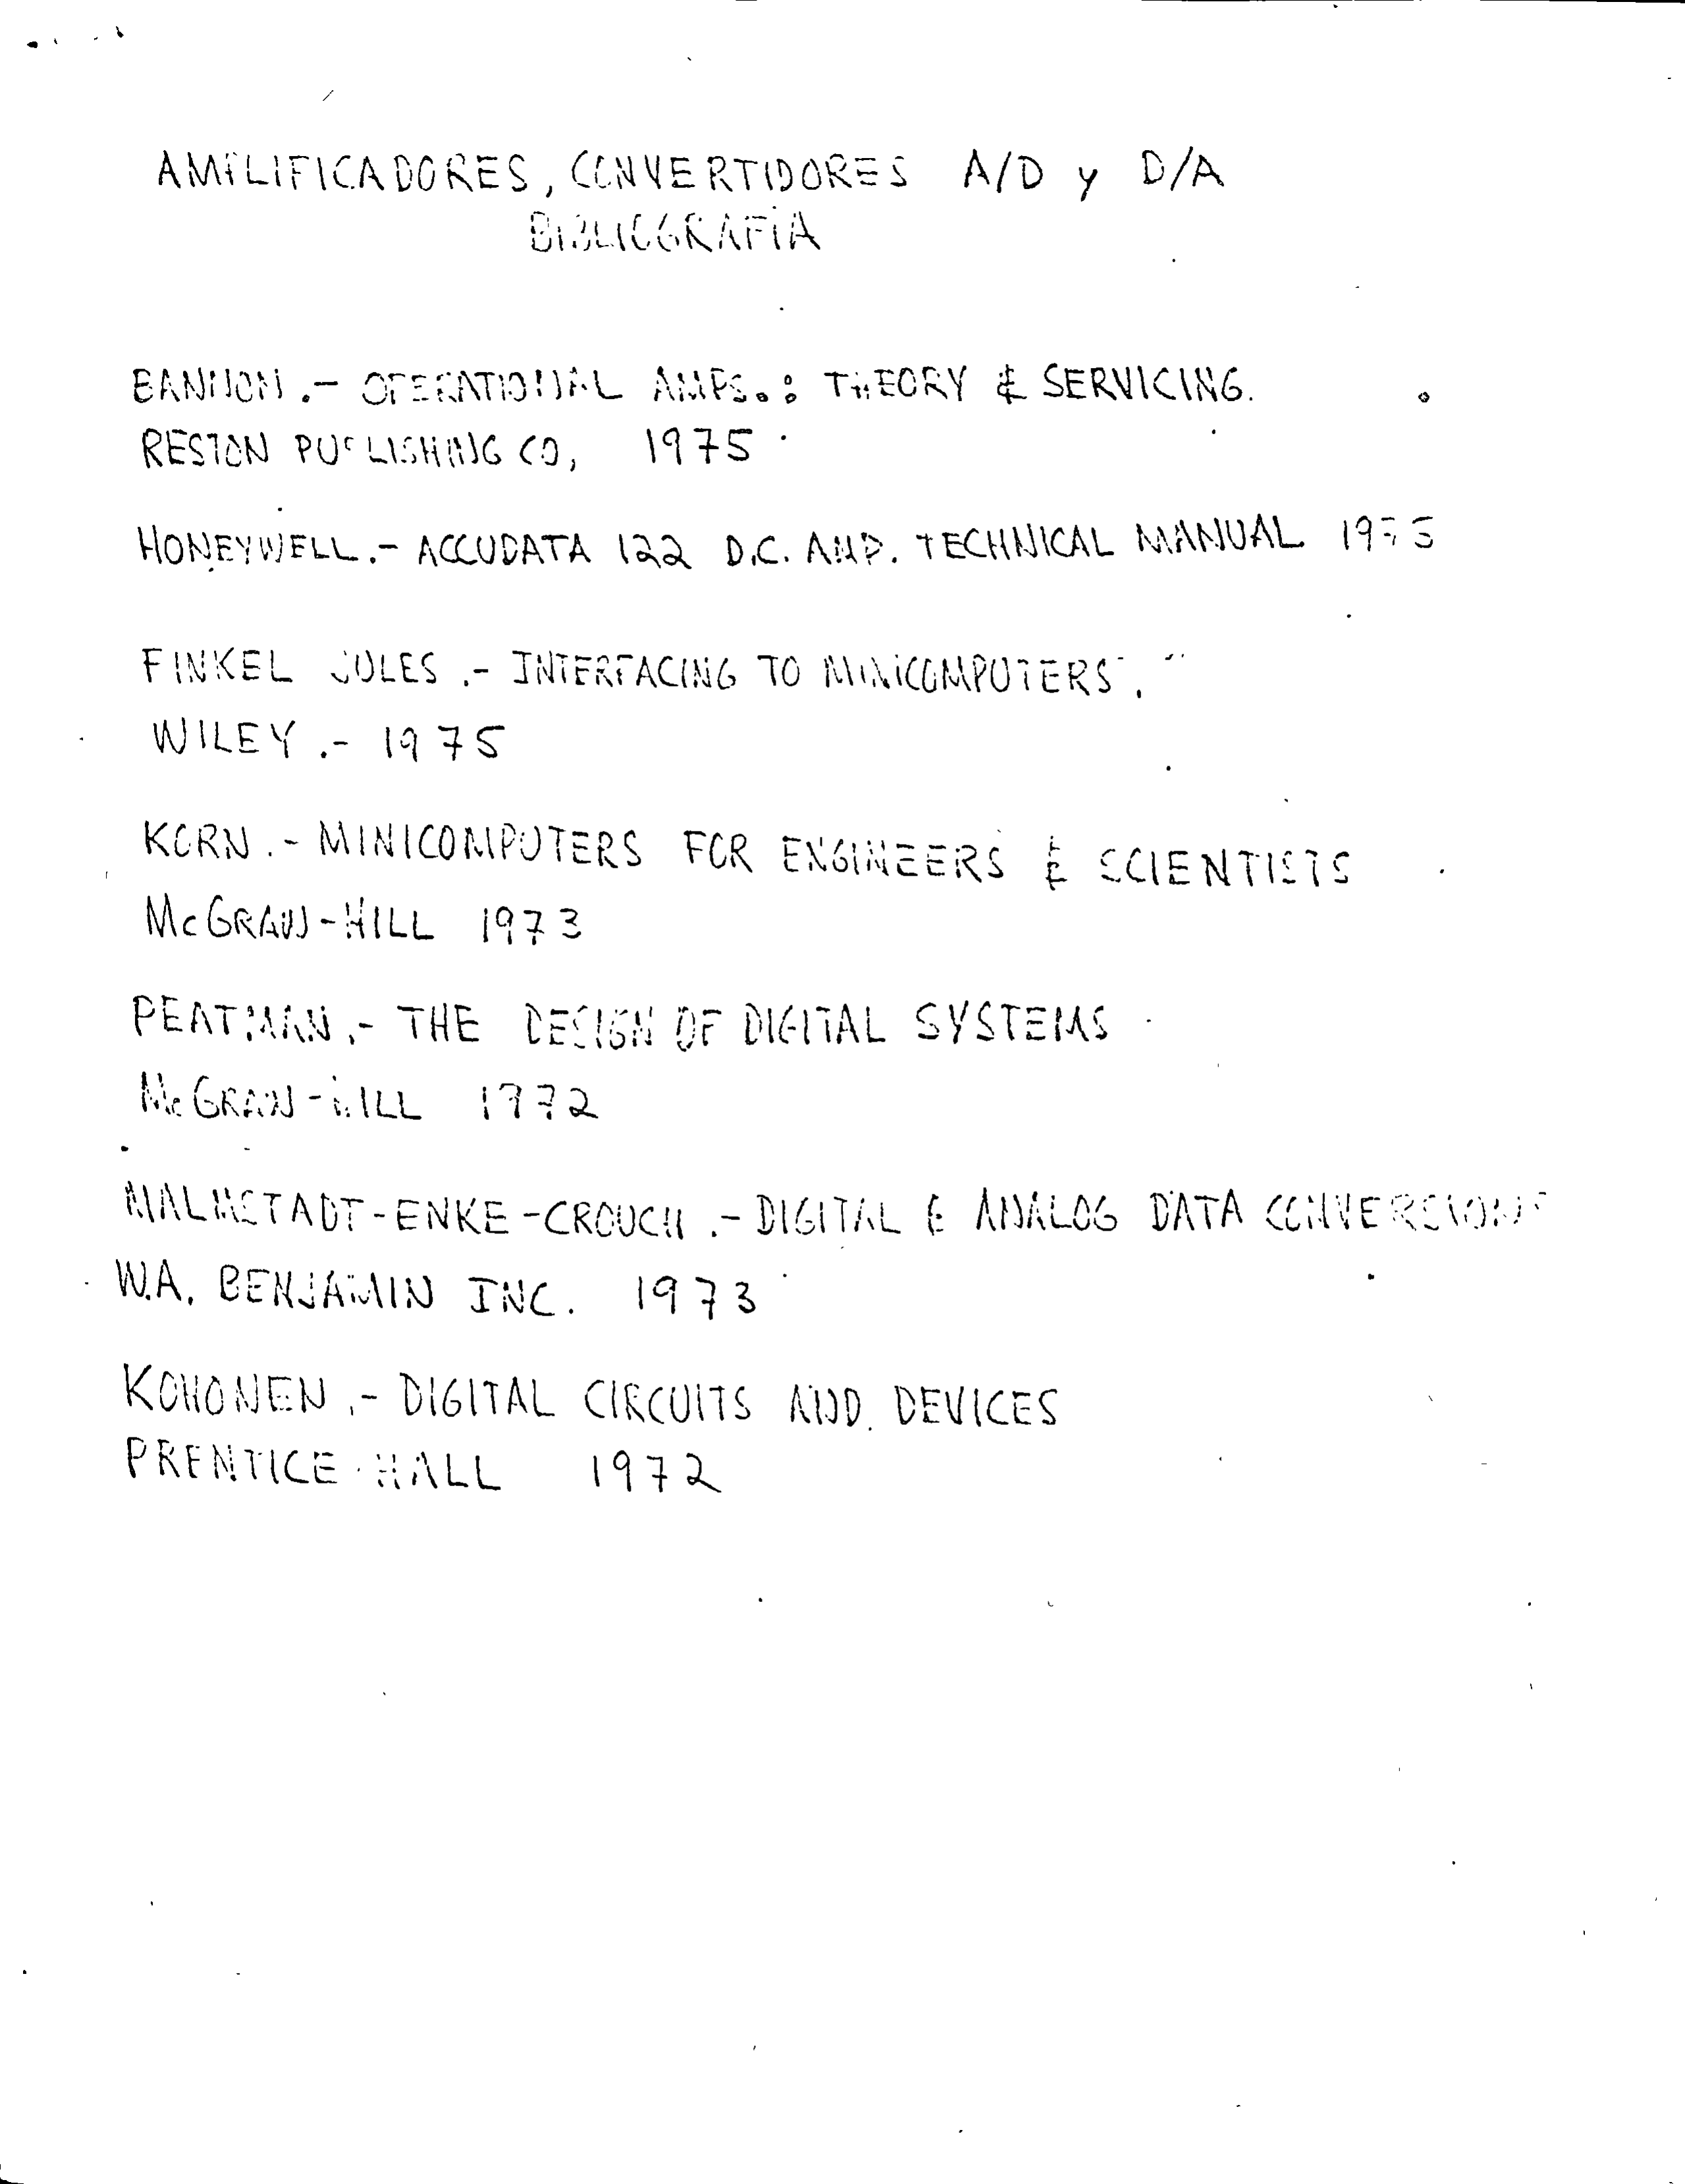 AMPLIFICADORES, CONVERTIDORES A/D y D/A
BIBLIOGRAFIA
BANNON.- OPERATIONAL AMPS.: THEORY & SERVICING.
RESTON PUBLISHING CO, 1975
HONEYWELL.- ACCUDATA 122 D.C. AMP. TECHNICAL MANUAL 1975
FINKEL JULES .- INTERFACING TO MINICOMPUTERS".
WILEY .- 1975
KORN .- MINICOMPUTERS FOR ENGINEERS & SCIENTISTS
McGRAW-HILL 1973
PEATMAN.- THE DESIGN OF DIGITAL SYSTEMS
McGRAW-HILL 1972
MALMSTADT-ENKE-CROUCH .- DIGITAL & ANALOG DATA CONVERSIONS
W.A. BENJAMIN INC. 1973
KOHONEN .- DIGITAL CIRCUITS AND DEVICES
PRENTICE-HALL 1972